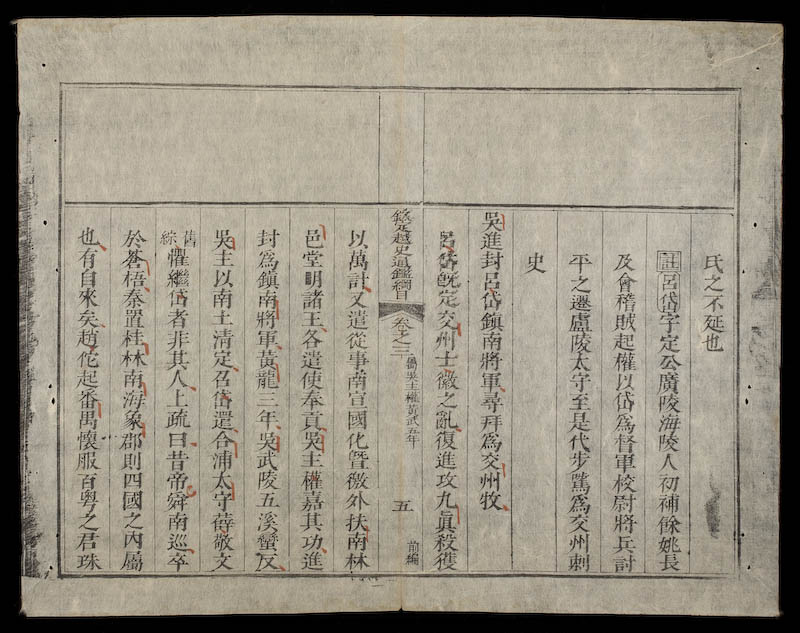 氏之不延也
註呂岱字定公廣陵海陵人初補餘姚長
及會稽賊起權以岱爲督軍校尉將兵討
平之遷廬陵太守至是代步騭爲交州刺
史
吳進封呂岱鎮南將軍尋拜爲交州牧
呂岱旣定交州士徽之亂復進攻九眞殺獲
欽定越史通鑑綱目
卷之三
屬吳主權黃武五年
五
前編
以萬計又遣從事南宣國化暨徼外扶南林
邑堂明諸王各遣使奉貢吳主權嘉其功進
封爲鎮南將軍黃龍三年吳武陵五溪蠻反
吳主以南土清定召岱還合浦太守薛敬文
舊
綜
懼繼岱者非其人上疏曰昔帝舜南巡卒
於蒼梧秦置桂林南海象郡則四國之內屬
也有自來矣趙佗起番禺懷服百粵之君珠